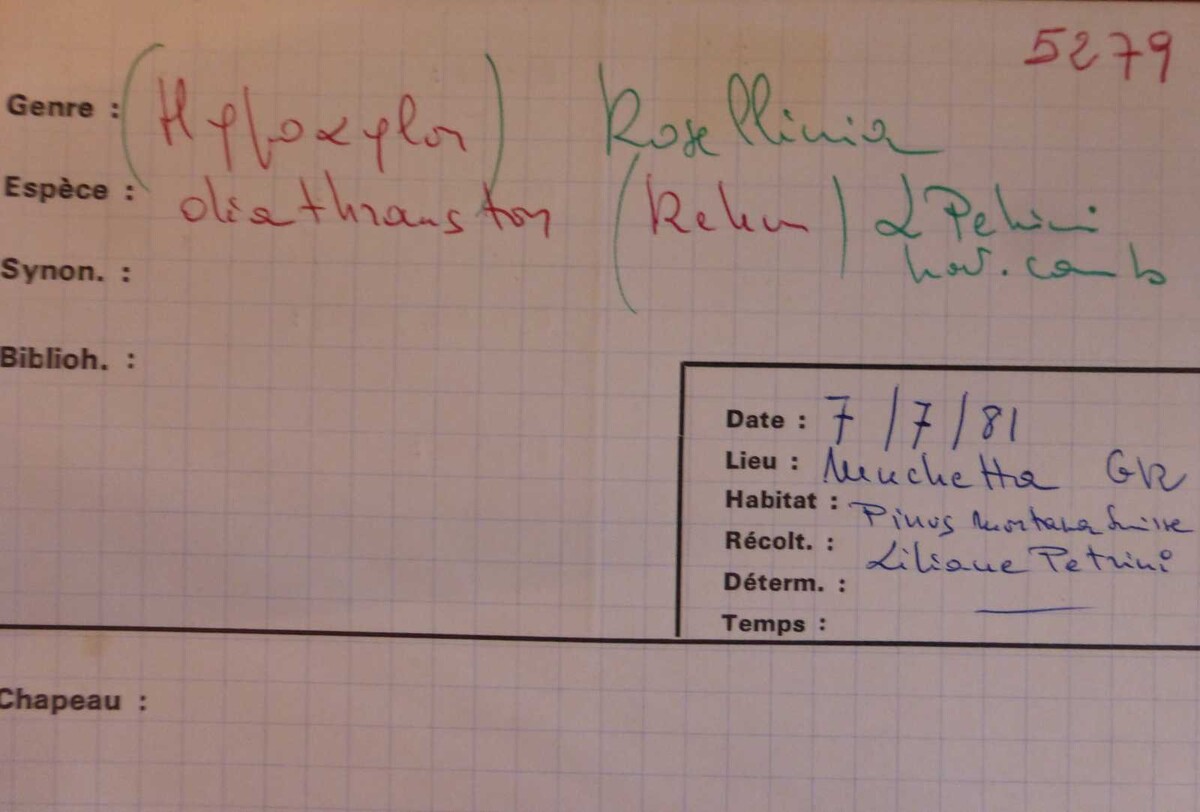 5279
Genre : (Hypoxylon) Rosellinia
Espèce : diathrauston (Rehm) L Petrini
nov. comb
Synon. :
Biblioh. :
Date : 7/7/81
Lieu : Muchetta GR
Habitat : Pinus montana Suisse
Récolt. : Liliane Petrini
Déterm. :
Temps :
Chapeau :